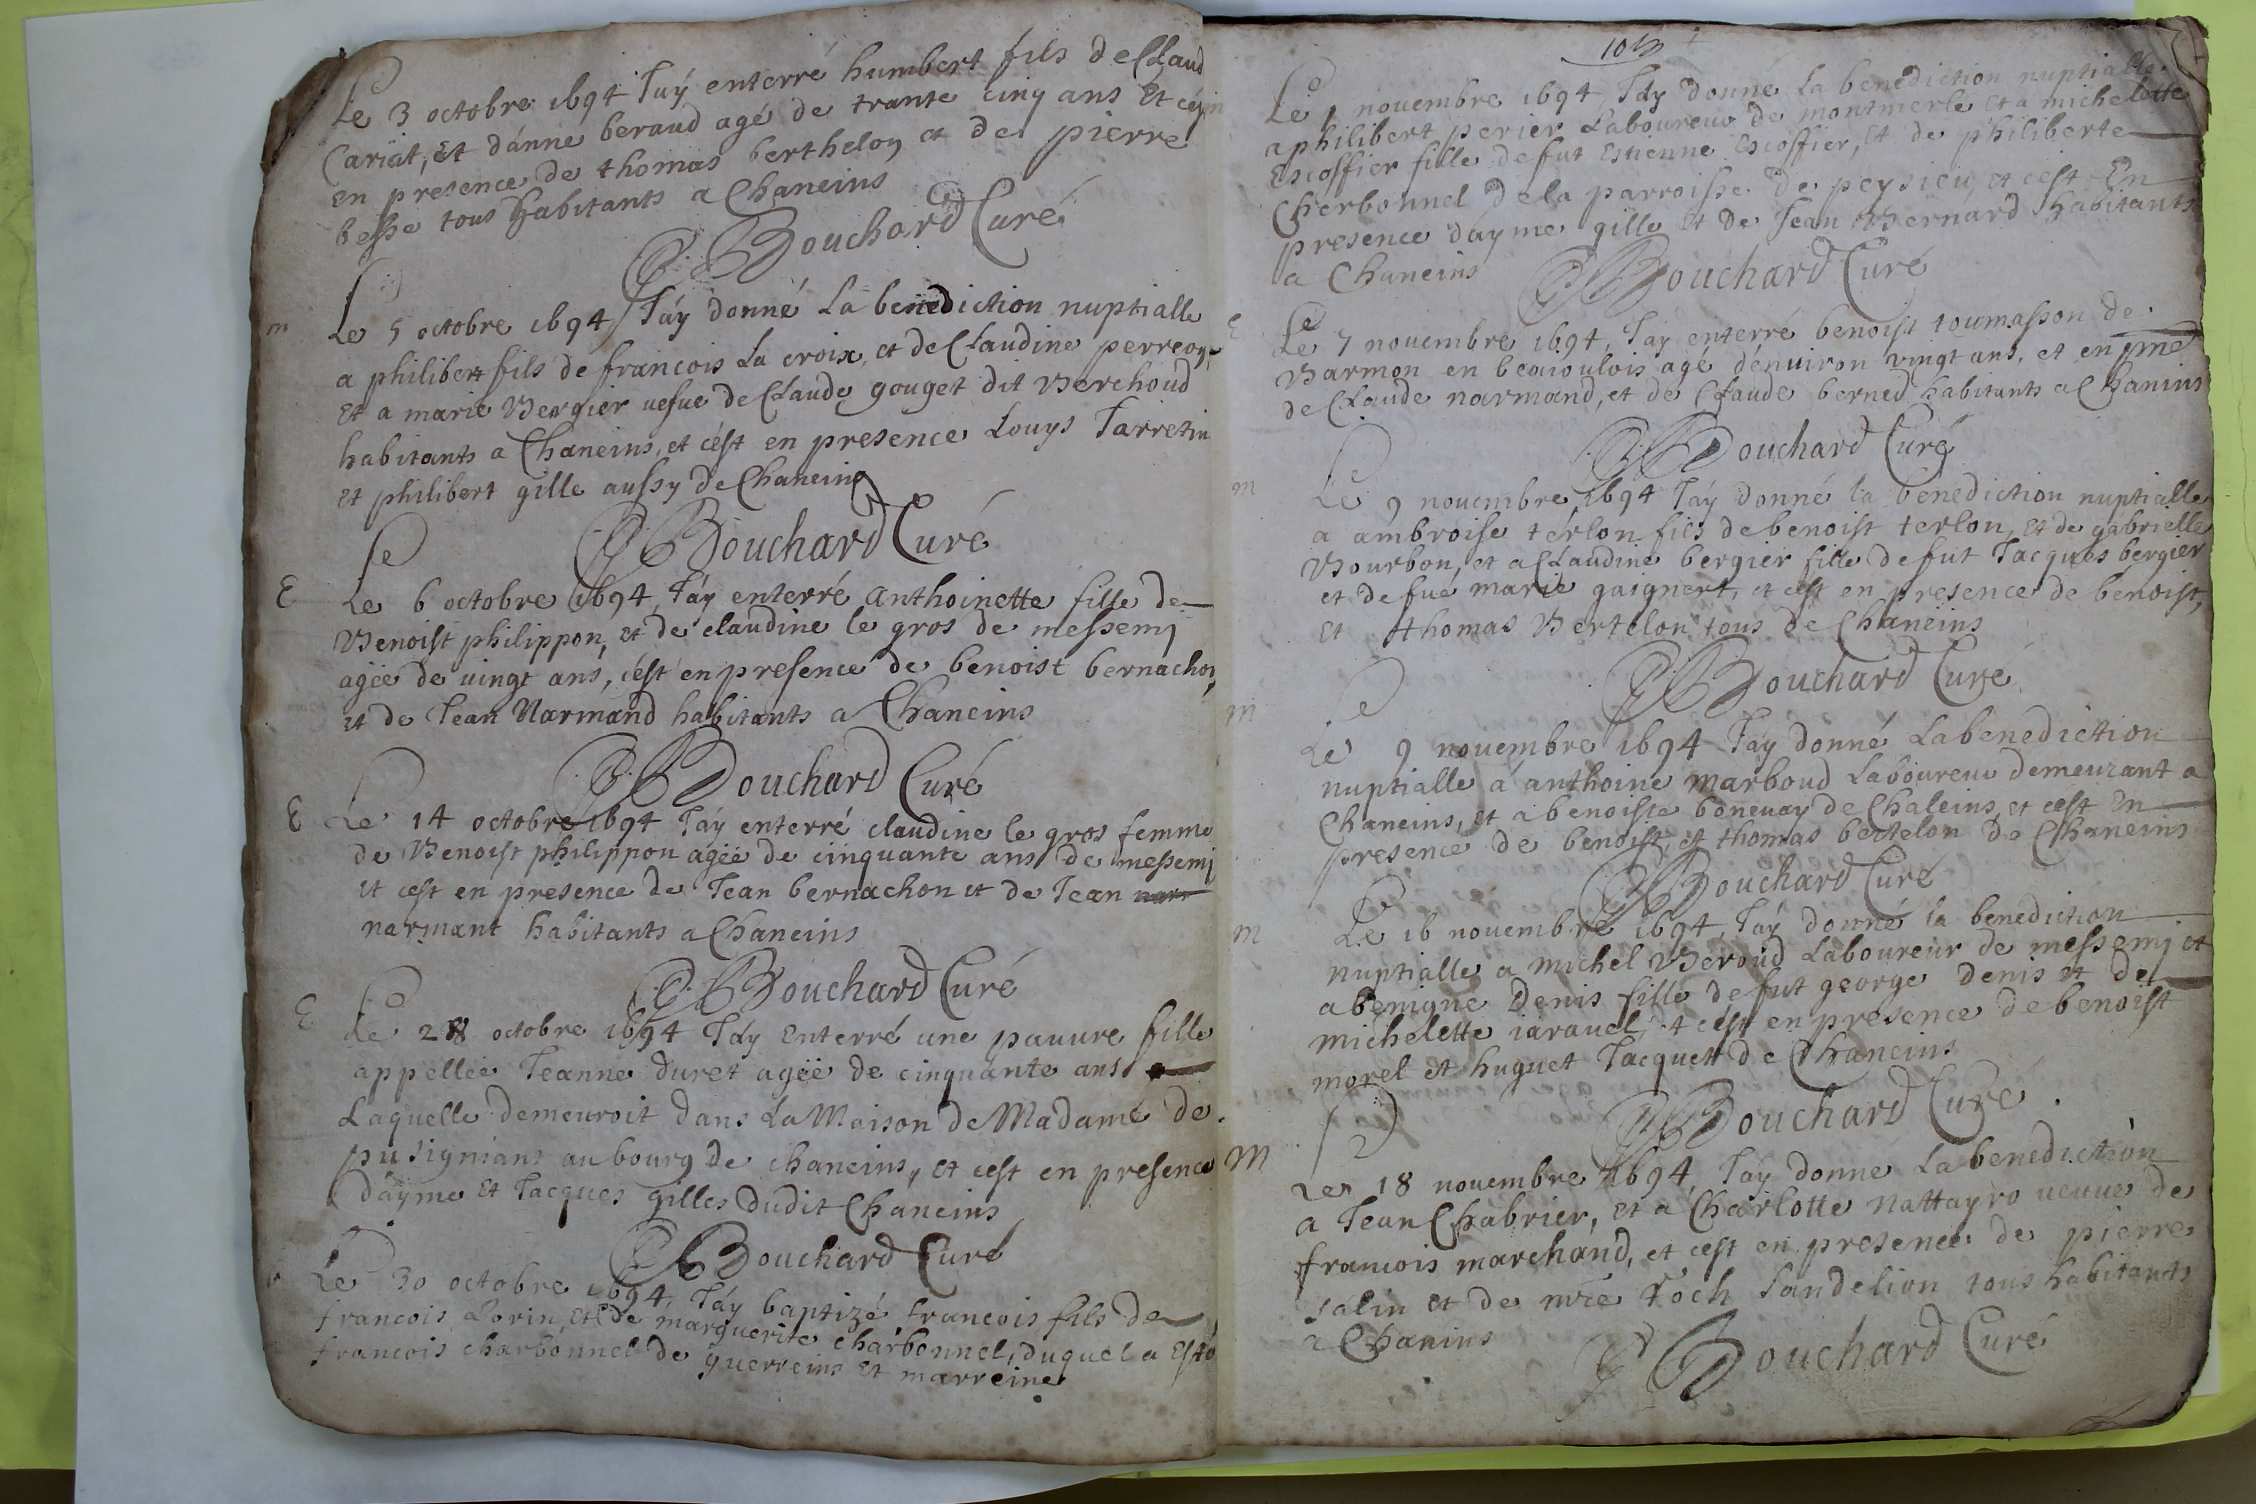 Le 3 octobre 1694 Jáÿ enterré humbert fils de Claud
Cariat, et dánne beraud agé de trante cinq ans Et
en presence de thomas berthelon et de pierre
besse tous habitants a Chaneins
Bouchard Curé
m
Le 5 octobre 1694 / Jáÿ donné La benediction nuptialle
a philibert fils de francois La croix, et de Claudine
Et a marie Vergier uefue de Claude gouget dit Verchoud
habitants a Chaneins, et cést en presence Louys Jarretin
et philibert gille aussy de Chaneins
Bouchard Curé
E
Le 6 octobre 1694, Jáy enterré anthoinette fille de
Benoist philippon, et de claudine le gros de messemj
agée de uingt ans, cést en presence de benoist bernachon
et de Jean Narmand habitants a Chaneins
Bouchard Curé
E
Le 14 octobre 1694 Jáy enterré claudine le gros femme
de Benoist philippon agée de cinquante ans de messemj
et cest en presence de Jean bernachon et de Jean nar
narmant habitants a Chaneins
Bouchard Curé
E
Le 28 octobre 1694 Jáy enterré une pauure fille
appellée Jeanne duret agée de cinquante ans
Laquelle demeuroit dans La Maison de Madame de
pusignians au bourg de chaneins, et cest en presence
dáyme et Jacques gilles dudit Chaneins
Bouchard Curé
Le 30 octobre 1694, Jáy baptizé francois fils de
francois Lorin, et de marguerite charbonnel, duquel a
francois charbonnel de guerreins et marreine
103
Le nouembre 1694, Jáy donné La benediction nuptialle
a philibert perier Laboureur de montmerle et a michelette
Escoffier fille de fut Estienne Escoffier, et de philiberte
Cherbonnel de la parroisse de peysieu, et cest En
presence dáyme gille et de Jean Bernard habitants
a Chaneins
Bouchard Curé
E
Le 7 nouembre 1694, Jay enterré benoist toumasson de
Varmon en beaioulois agé dénuiron vingt ans, et en pnce
de Claude narmand, et de Claude berned habitants a Chanins
Bouchard Curé
m
Le 9 nouembre 1694 Jáy donné la benediction nuptialle
a ambroise terlon fils de benoist terlon, et de gabrielle
Bourbon, et a Claudine bergier fille de fut Jacques bergier
et de fue marie gaignert, et cest en presence de benoist,
et thomas Bertelon tous de Chaneins
Bouchard Curé
m
Le 9 nouembre 1694 Jáy donné La benediction
nuptialle a anthoine marboud Laboureur demeurant a
Chaneins, et a benoiste boneuay de Chaleins, et cest En
presence de benoist, et thomas bertelon de Chaneins
Bouchard Curé
m
Le 16 nouembre 1694, Jáy donné la benediction
nuptialle a michel Beroud Laboureur de messemj et
a benigne Denis fille de fut george denis et de
michelette iarauel, et cést en presence de benoist
morel et huguet Jacquett de Chaneins
Bouchard Curé
M
Le 18 nouembre 1694, Jáy donné La benediction
a Jean Chabrier, et a Charlotte nattayro ueuue de
francois marchand, et cest en presence de pierre
salin et de mre Roch Sandelion tous habitants
a Chanins
Bouchard Curé